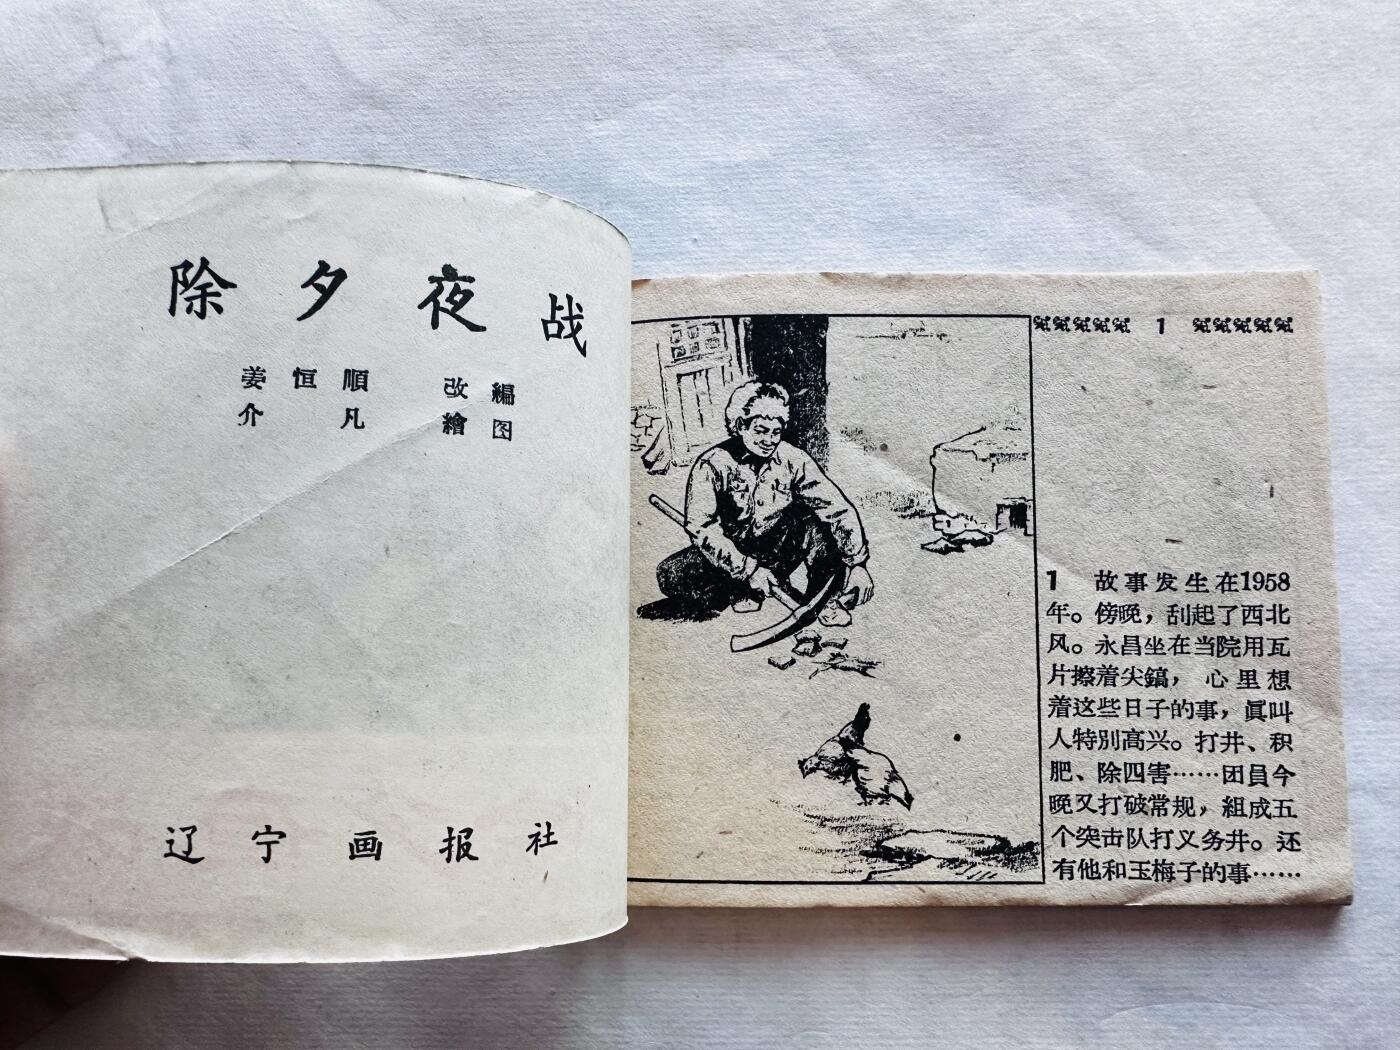 除夕夜战
姜恒順 改編
介凡 繪图
辽宁画报社
1
1 故事发生在1958
年。傍晚，刮起了西北
风。永昌坐在当院用瓦
片擦着尖鎬，心里想
着这些日子的事，眞叫
人特別高兴。打井、积
肥、除四害……团員今
晚又打破常规，組成五
个突击队打义务井。还
有他和玉梅子的事……